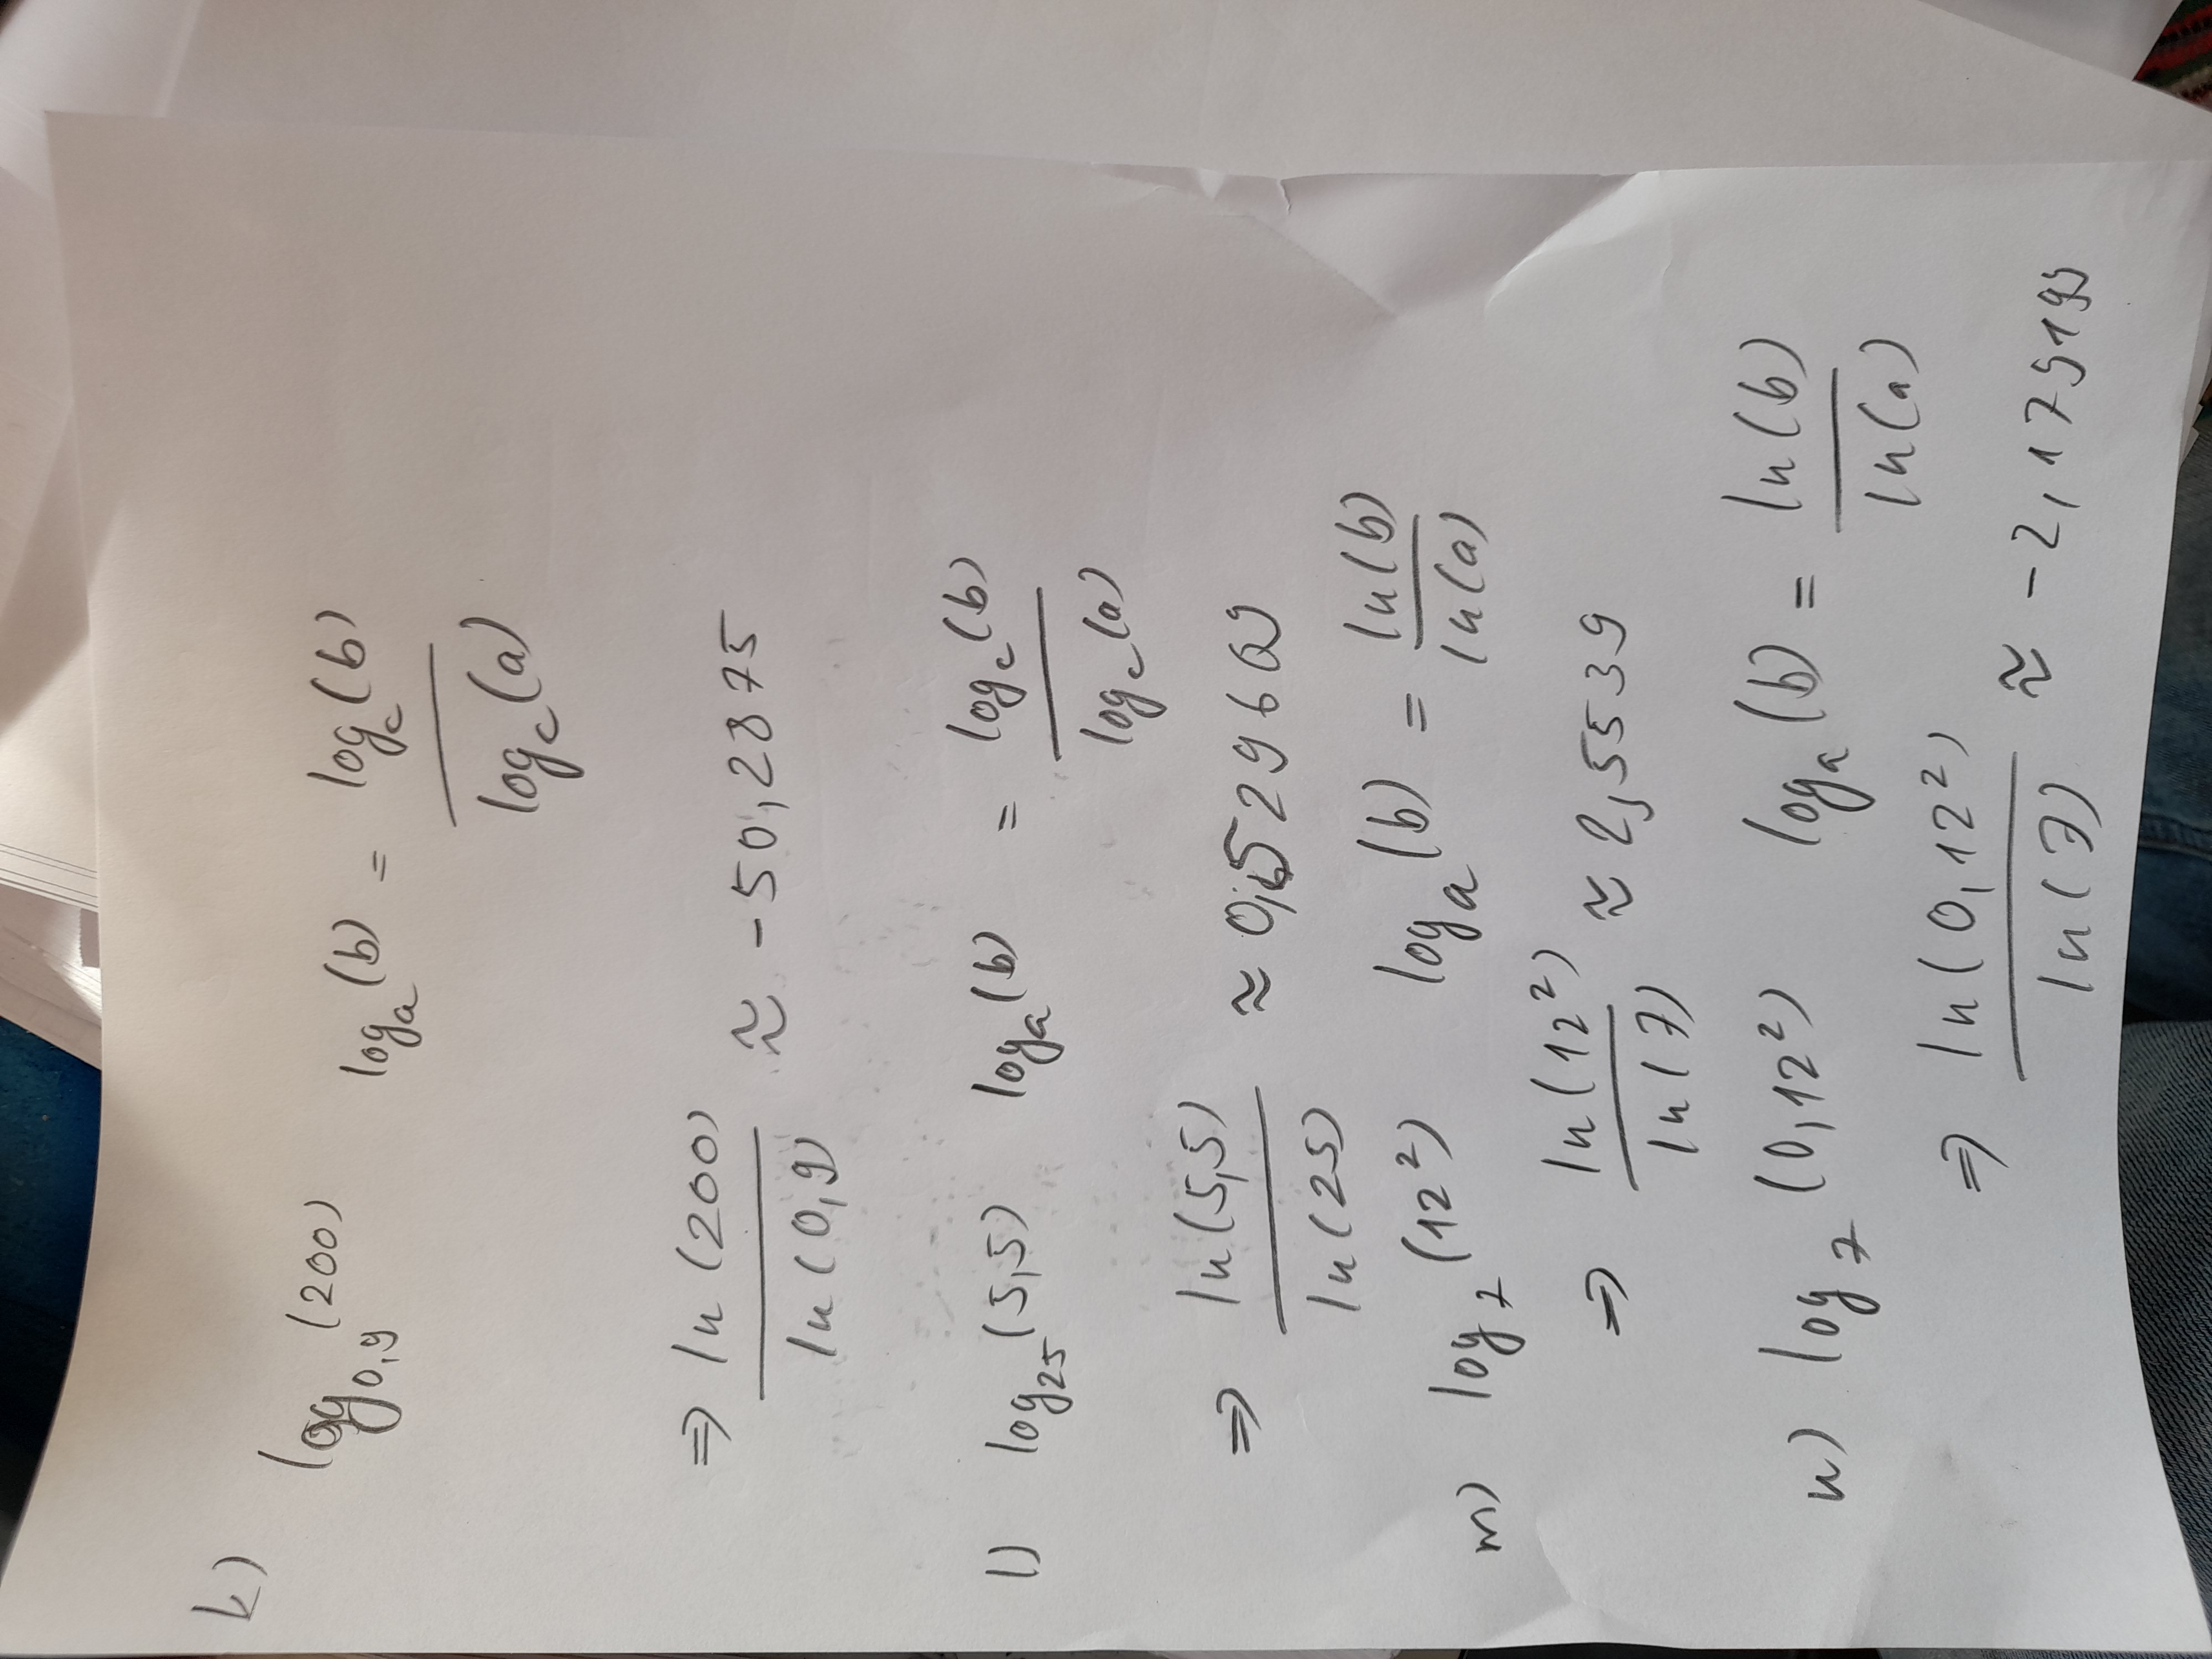 k) log₀,₉(200) logₐ(b) = log_c(b) / log_c(a)
⇒ ln(200) / ln(0,9) ≈ -50,2875
l) log₂₅(5,5) logₐ(b) = log_c(b) / log_c(a)
⇒ ln(5,5) / ln(25) ≈ 0,52960
m) log₇(12²) logₐ(b) = ln(b) / ln(a)
⇒ ln(12²) / ln(7) ≈ 2,5539
n) log₇(0,12²) logₐ(b) = ln(b) / ln(a)
⇒ ln(0,12²) / ln(7) ≈ -2,179199